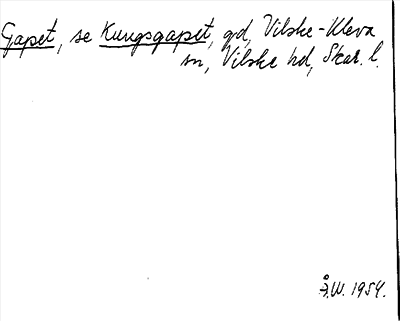 Gapet, se Kungsgapet, gd, Vilske-Kleva
sn, Vilske hd, Skar. l.
Å.W. 1954.